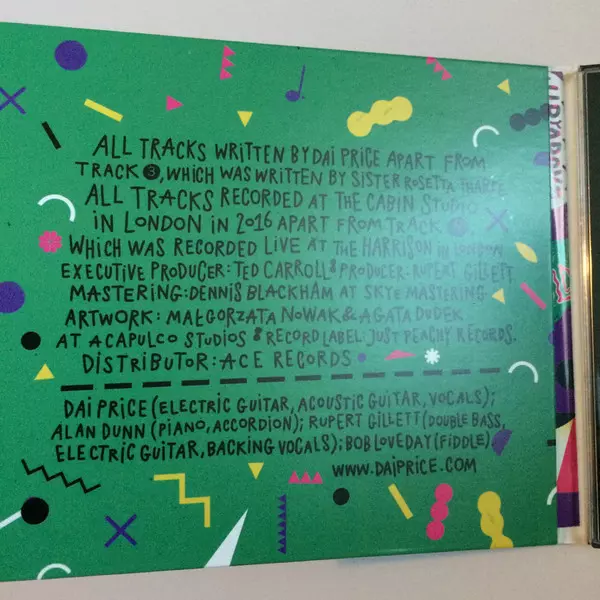 ALL TRACKS WRITTEN BY DAI PRICE APART FROM
TRACK 3, WHICH WAS WRITTEN BY SISTER ROSETTA THARPE
ALL TRACKS RECORDED AT THE CABIN STUDIO
IN LONDON IN 2016 APART FROM TRACK
WHICH WAS RECORDED LIVE AT THE HARRISON IN LONDON
EXECUTIVE PRODUCER: TED CARROLL & PRODUCER: RUPERT GILLETT
MASTERING: DENNIS BLACKHAM AT SKYE MASTERING
ARTWORK: MAŁGORZATA NOWAK & AGATA DUDEK
AT ACAPULCO STUDIOS & RECORD LABEL: JUST PEACHY RECORDS.
DISTRIBUTOR: ACE RECORDS
DAI PRICE (ELECTRIC GUITAR, ACOUSTIC GUITAR, VOCALS);
ALAN DUNN (PIANO, ACCORDION); RUPERT GILLETT (DOUBLE BASS,
ELECTRIC GUITAR, BACKING VOCALS); BOB LOVEDAY (FIDDLE)
WWW.DAIPRICE.COM